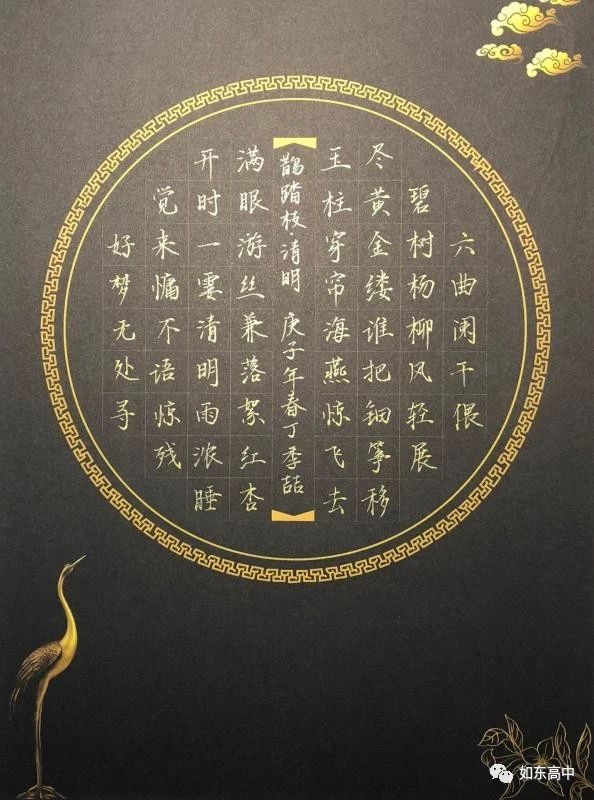 六曲阑干偎
碧树杨柳风轻展
尽黄金缕谁把钿筝移
玉柱穿帘海燕惊飞去
鹊踏枝·清明 庚子年春丁季喆
满眼游丝兼落絮红杏
开时一霎清明雨浓睡
觉来慵不语惊残
好梦无处寻
如东高中